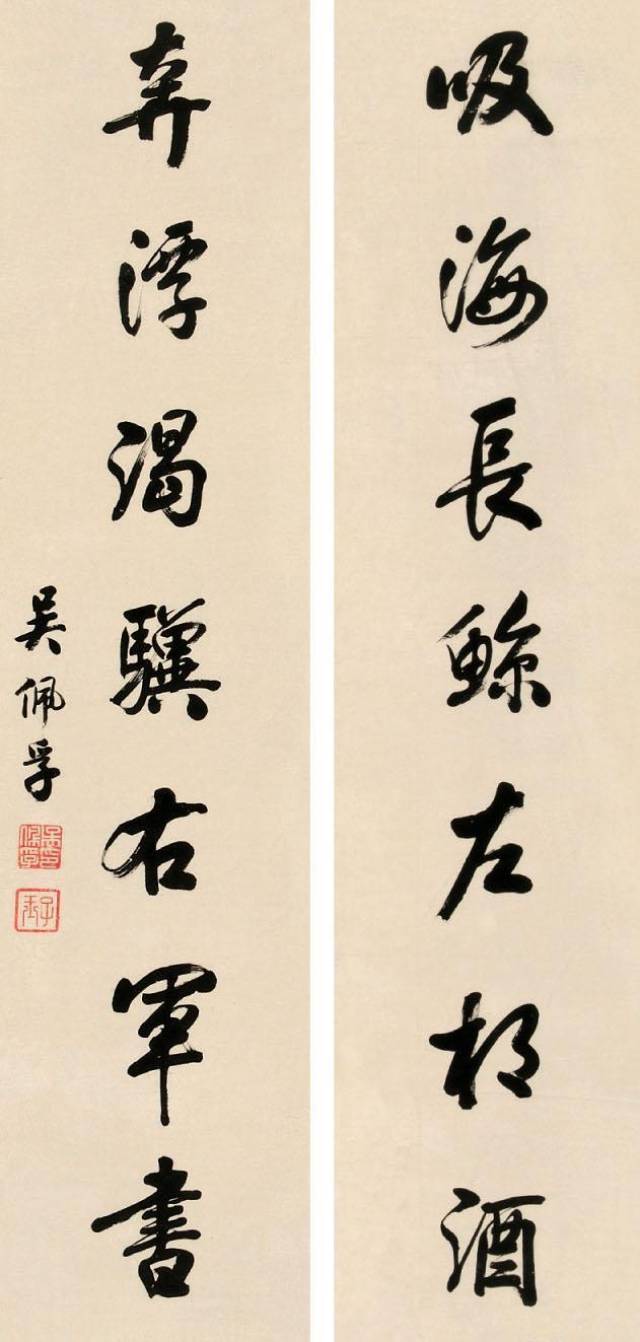 吸海長鯨左相酒
奔渟渴驥右軍書
吳佩孚
吳佩孚印
子玉